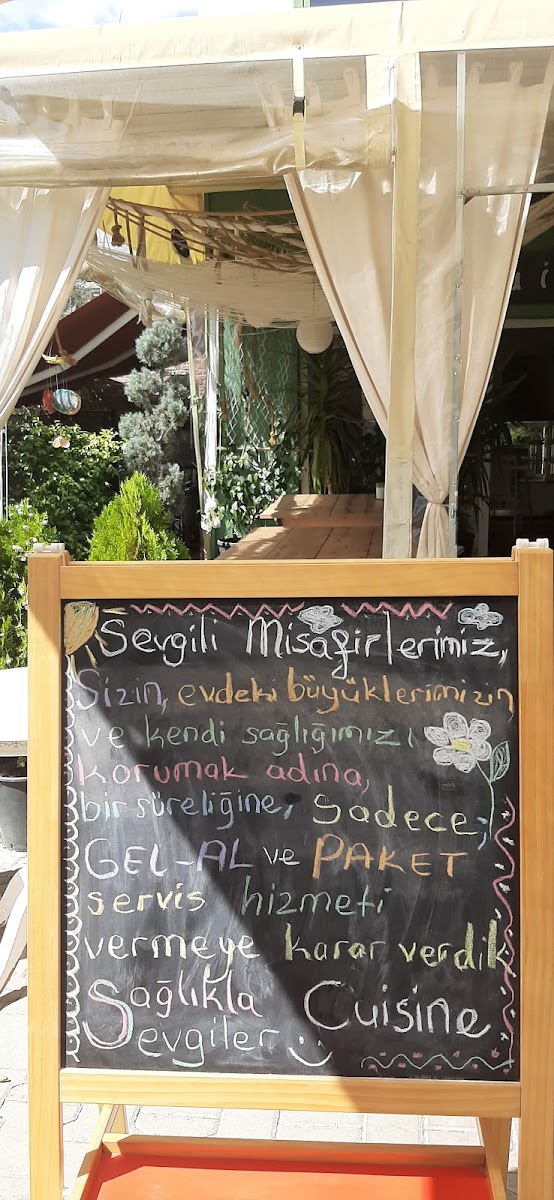 Sevgili Misafirlerimiz,
Sizin, evdeki büyüklerimizin
ve kendi sağlığımızı
korumak adına,
bir süreliğine, sadece;
GEL-AL ve PAKET
servis hizmeti
vermeye karar verdik
Sağlıkla Cuisine
Sevgiler